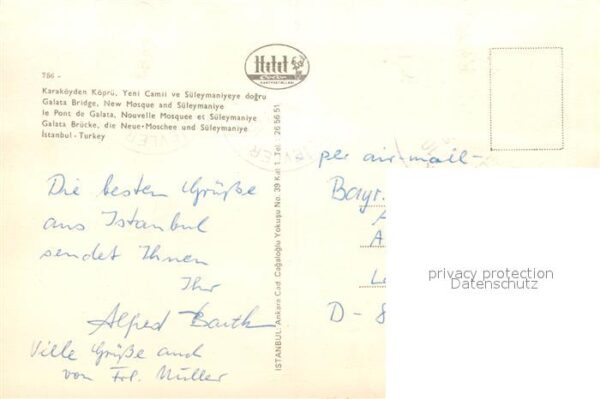 Hitit
756 -
Karaköyden Köprü, Yeni Camii ve Süleymaniyeye doğru
Galata Bridge, New Mosque and Süleymaniye
le Pont de Galata, Nouvelle Mosquee et Süleymaniye
Galata Brücke, die Neue-Moschee und Süleymaniye
İstanbul - Turkey
Die besten Grüße
aus Istanbul
sendet Ihnen
Ihr
Alfred Barth
Ville Grüße auch
von Frl. Müller
İSTANBUL: Ankara Cad. Cağaloğlu Yokuşu No. 39 Kat 1 Tel. 26 56 51
per air-mail-
Bayr.
A
A
L
D - 8
privacy protection
Datenschutz